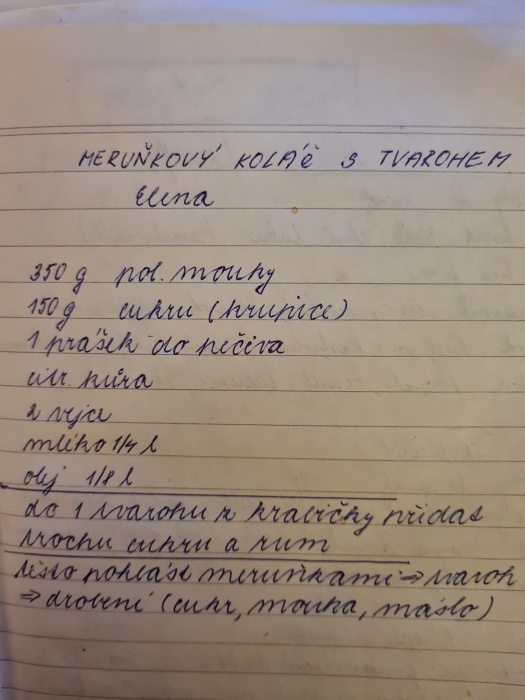 MERUŇKOVÝ KOLÁČ S TVAROHEM
Elena
350 g pol. mouky
150 g cukru (krupice)
1 prášek do pečiva
citr. kůra
2 vejce
mléko 1/4 l
olej 1/8 l
do 1 tvarohu z krabičky přidat
trochu cukru a rum
těsto poklást meruňkami ⇒ tvaroh
⇒ drobení (cukr, mouka, máslo)